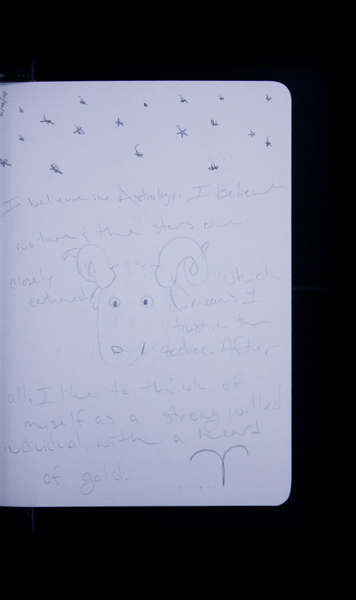 I believe in Astrology. I believe
nature & the stars are
closely which
means I
trust in the
zodiac. After
all, I like to think of
myself as a strong willed
individual, with a heart
of gold.